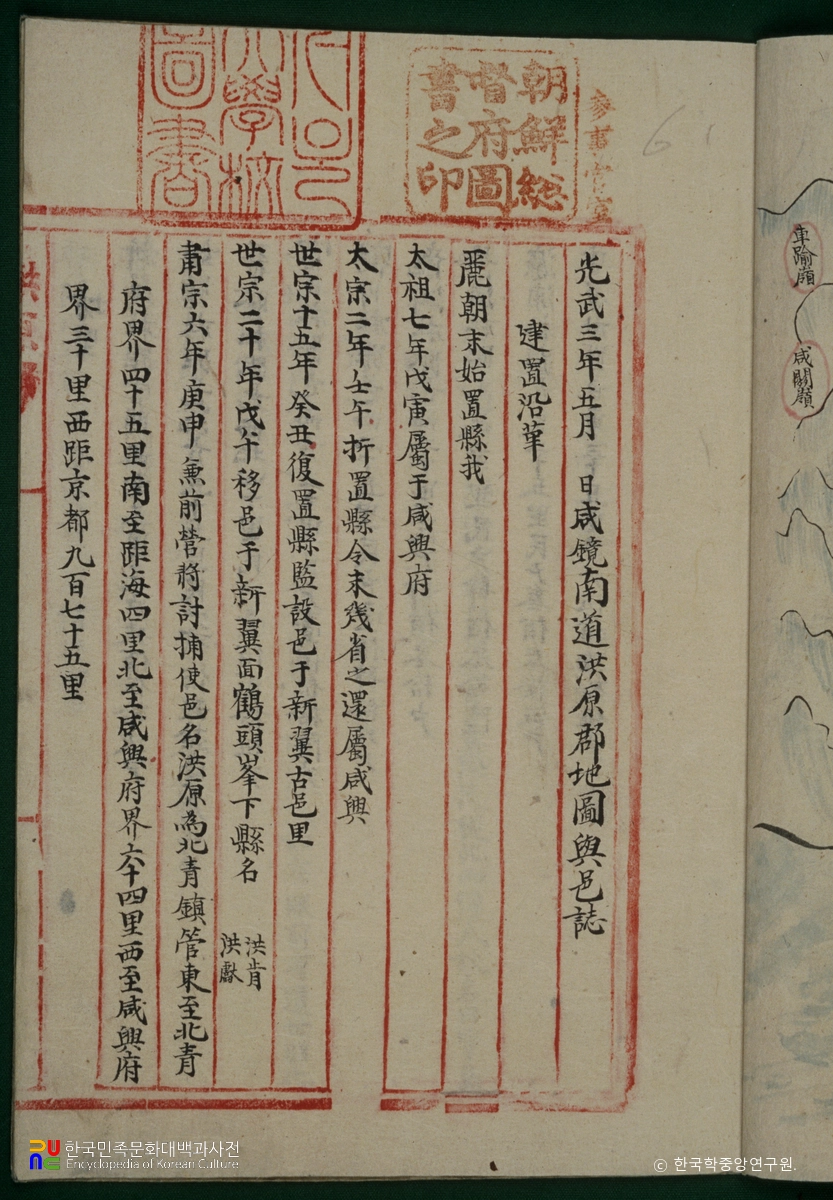 光武三年五月 日咸鏡南道洪原郡地圖與邑誌
建置沿革
麗朝末始置縣我
太祖七年戊寅屬于咸興府
太宗二年壬午折置縣令未幾省之還屬咸興
世宗十五年癸丑復置縣監設邑于新翼古邑里
世宗二十年戊午移邑于新翼面鶴頭峯下縣名 洪肯 洪獻
肅宗六年庚申兼前營將討捕使邑名洪原為北青鎮管東至北青
府界四十五里南至距海四里北至咸興府界六十四里西至咸興府
界三十里西距京都九百七十五里
朝鮮總
督府圖
書之印
大學校
圖書
車踰嶺
咸關嶺
61
한국민족문화대백과사전
Encyclopedia of Korean Culture
© 한국학중앙연구원.